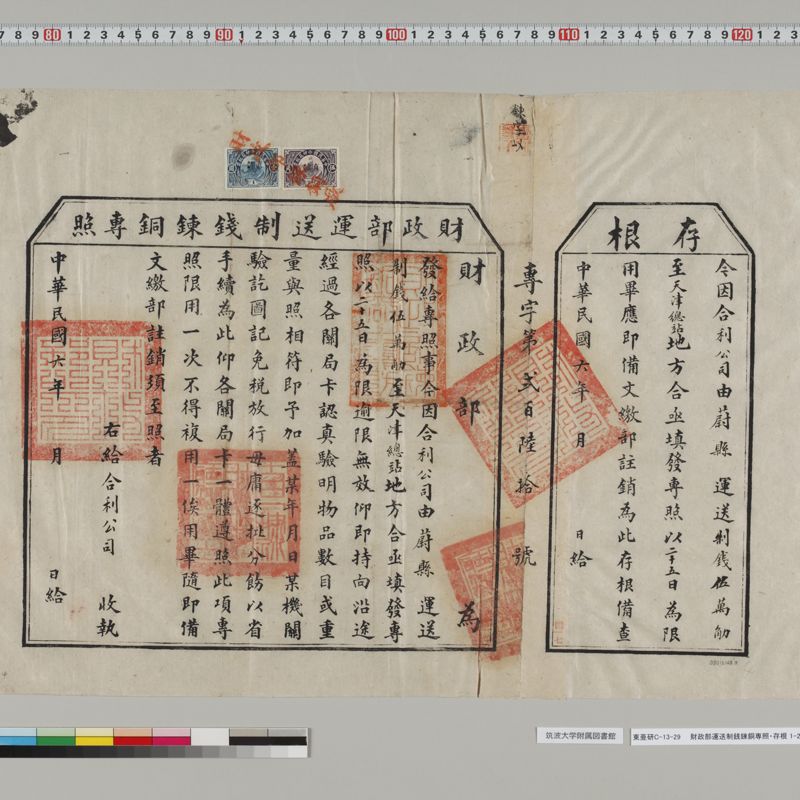 存根
今因合利公司由蔚縣　運送制錢伍萬觔
至天津總站地方合亟填發專照以二十五日為限
用畢應即備文繳部註銷為此存根備查
中華民國六年　月　日給
專字第弍百陸拾　號
財政部運送制錢鍊銅專照
財政部　為
發給專照事今因合利公司由蔚縣　運送
制錢伍萬觔至天津總站地方合亟填發專
照以二十五日為限逾限無效仰即持向沿途
經過各關局卡認真驗明物品數目或重
量與照相符即予加蓋某年月日某機關
驗訖圖記免稅放行毋庸逐批分飭以省
手續為此仰各關局卡一體遵照此項專
照限用一次不得複用一俟用畢隨即備
文繳部註銷須至照者
右給合利公司　收執
中華民國六年　月　日給
筑波大学附属図書館
東亜研C-13-29　財政部運送制銭錬銅専照・存根 1-2